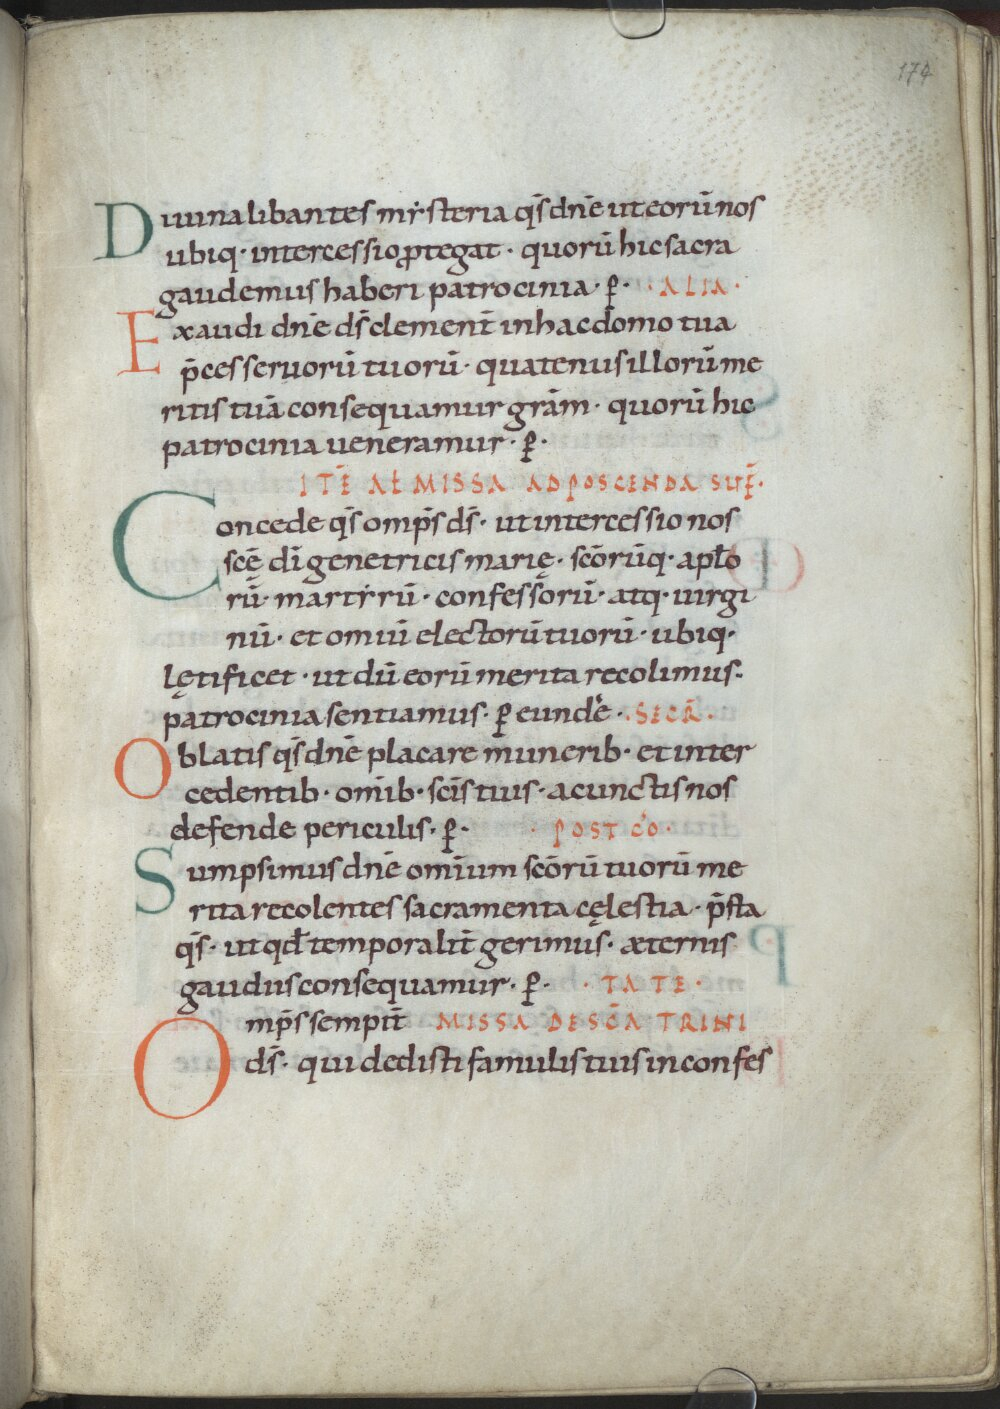 174
Diuina libantes mẏsteria qs̄ dn̄e ut eorū nos
ubiq· intercessio ꝓtegat · quorū hic sacra
gaudemus haberi patrocinia · p̄ · · ALIA ·
Exaudi dn̄e ds̄ clement̄ in hac domo tua
p̄ces seruorū tuorū · quatenus illorū me
ritis tuā consequamur grām · quorū hic
patrocinia ueneramur · p̄ ·
ITĒ AŁ MISSA AD POSCENDA SUF̄·
Concede qs̄ omps̄ ds̄ · ut intercessio nos
scę̄ dī genetricis marię · scōrūq· apło
rū · martẏrū · confessorū · atq· uirgi
nū · et omiū electorū tuorū · ubiq·
lętificet · ut dū eorū merita recolimus·
patrocinia sentiamus · p̄ eunde · · SECR̄ ·
Oblatis qs̄ dn̄e placare munerib· et inter
cedentib· omīb· scīs tuis · a cunctis nos
defende periculis · p̄ · · POST CŌ ·
Sumpsimus dn̄e omīum scōrū tuorū me
rita recolentes sacramenta cęlestia · p̄sta
qs̄ · ut qđ temporalit̄ gerimus · æternis
gaudiis consequamur · p̄ · · TATE ·
Omps̄ sempit̄ MISSA DE SCĀ TRINI
ds̄ · qui dedisti famulis tuis in confes